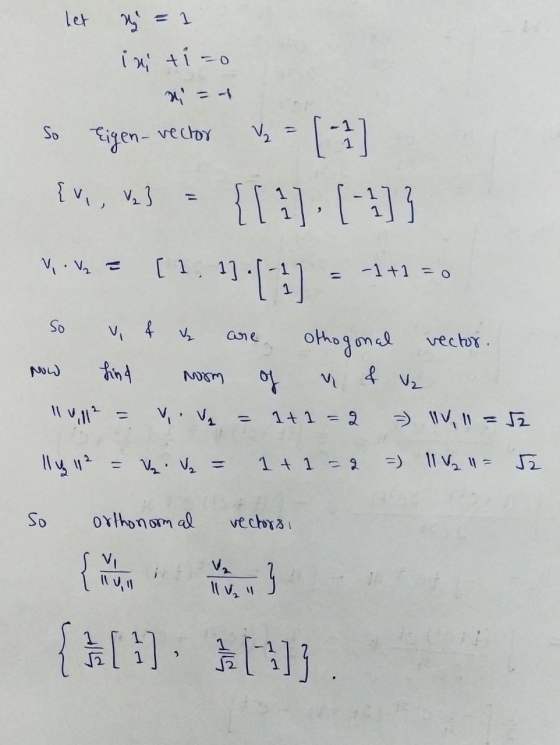 let x₂' = 1
i x₁' + i = 0
x₁' = -1
So Eigen-vector V₂ = [-1 1]
{V₁, V₂} = {[1 1], [-1 1]}
V₁ · V₂ = [1 1]·[-1 1] = -1+1 = 0
So V₁ & V₂ are othogonal vector.
Now find norm of V₁ & V₂
||V₁||² = V₁ · V₁ = 1+1 = 2 ⇒ ||V₁|| = √2
||V₂||² = V₂ · V₂ = 1 + 1 = 2 ⇒ ||V₂|| = √2
So orthonormal vectors,
{ V₁/||V₁|| , V₂/||V₂|| }
{ 1/√2 [1 1], 1/√2 [-1 1] }.